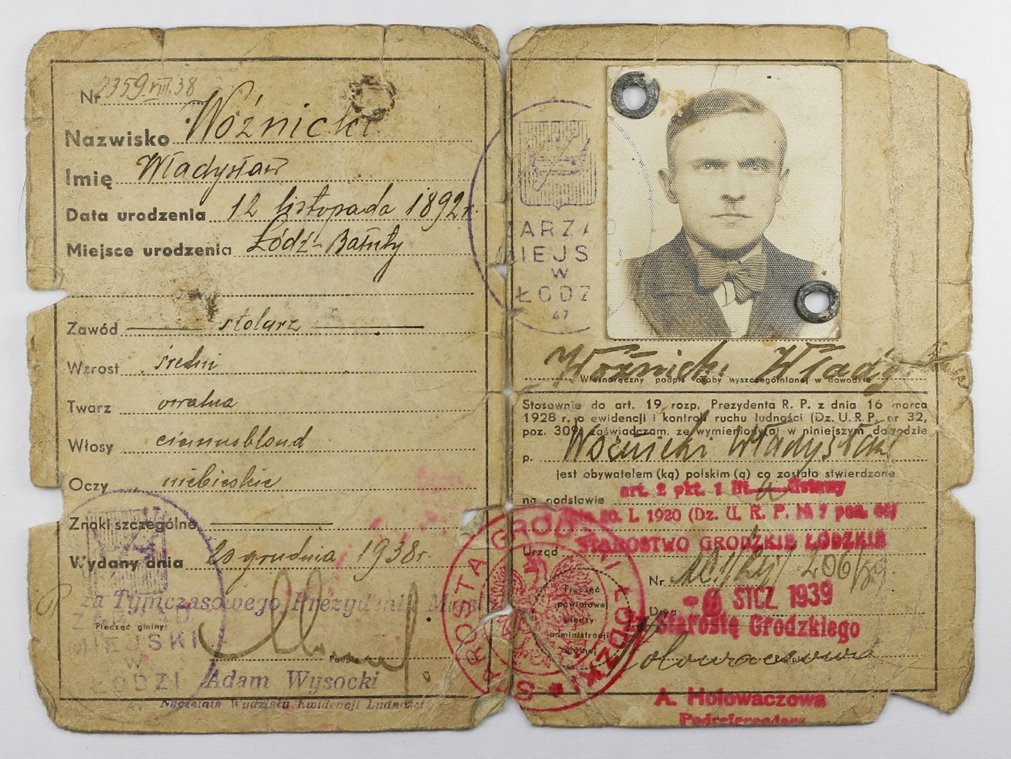 Nr 2359.VIII.38
Nazwisko Woźnicki
Imię Władysław
Data urodzenia 12 listopada 1892 r.
Miejsce urodzenia Łódź-Bałuty
Zawód stolarz
Wzrost średni
Twarz owalna
Włosy ciemnoblond
Oczy niebieskie
Znaki szczególne
Wydany dnia 20 grudnia 1938 r.
za Tymczasowego Prezydenta Miasta
Pieczęć gminy
ZARZĄD
MIEJSKI
W
ŁODZI
Podpis
Adam Wysocki
Naczelnik Wydziału Ewidencji Ludności
ZARZĄD
MIEJSKI
W
ŁODZI
47
Woźnicki Władysław
Własnoręczny podpis osoby wyszczególnionej w dowodzie
Stosownie do art. 19 rozp. Prezydenta R. P. z dnia 16 marca
1928 r. o ewidencji i kontroli ruchu ludności (Dz. U. R. P. nr 32,
poz. 309) zaświadczam, że wymieniony(a) w niniejszym dowodzie
p. Woźnicki Władysław
jest obywatelem (ką) polskim (ą) co zostało stwierdzone
na podstawie art. 2 pkt. 1 lit. a Ustawy
z dnia 20. I. 1920 (Dz. U. R. P. № 7 poz. 44)
Urząd STAROSTWO GRODZKIE ŁÓDZKIE
Nr.
Dnia - 6 STCZ 1939
Pieczęć
powiatowej
władzy
administracji
ogólnej
STAROSTA GRODZKI ŁÓDZKI
Starostę Grodzkiego
Hołowaczowa
A. Hołowaczowa
Podreferendarz